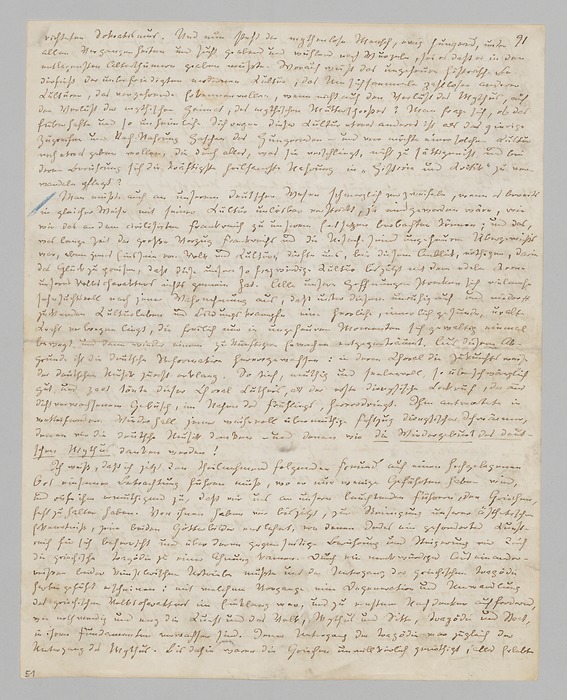 91
richteten Sokratismus. Und nun steht der mythenlose Mensch, ewig hungernd, unter
allen Vergangenheiten und sucht grabend und wühlend nach Wurzeln, sei es dass er in den
entlegensten Alterthümern graben müsste. Worauf weist das ungeheure historische Be-
dürfniss der unbefriedigten modernen Cultur, das Umsichsammeln zahlloser anderer
Culturen, das verzehrende Erkennenwollen, wenn nicht auf den Verlust des Mythus, auf
den Verlust der mythischen Heimat, des mythischen Mutterschoosses? Man frage sich, ob das
fieberhafte und so unheimliche Sichregen dieser Cultur etwas anderes ist als das gierige
Zugreifen und Nach-Nahrung Haschen des Hungernden – und wer möchte einer solchen Cultur
noch etwas geben wollen, die durch alles, was sie verschlingt, nicht zu sättigen ist und bei
deren Berührung sich die kräftigste heilsamste Nahrung in „Historie und Kritik" zu ver-
wandeln pflegt?
Man müsste auch an unserem deutschen Wesen schmerzlich verzweifeln, wenn es bereits
in gleicher Weise mit seiner Cultur unlösbar verstrickt, ja eins geworden wäre, wie
wir das an dem civilisirten Frankreich zu unserem Entsetzen beobachten können; und das,
was lange Zeit der grosse Vorzug Frankreichs und die Ursache seines ungeheuren Übergewichts
war, eben jenes Einssein von Volk und Cultur, dürfte uns, bei diesem Anblick, nöthigen, darin
das Glück zu preisen, dass diese unsere so fragwürdige Cultur bis jetzt mit dem edeln Kerne
unseres Volkscharakters nichts gemein hat. Alle unsere Hoffnungen strecken sich vielmehr
sehnsuchtsvoll nach jener Wahrnehmung aus, dass unter diesem unruhig auf und nieder
zuckenden Culturleben und Bildungskrampfe eine herrliche, innerlich gesunde, uralte
Kraft verborgen liegt, die freilich nur in ungeheuren Momenten sich gewaltig einmal
bewegt und dann wieder einem zukünftigen Erwachen entgegenträumt. Aus diesem Ab-
grunde ist die deutsche Reformation hervorgewachsen: in deren Choral die Zukunftsweise
der deutschen Musik zuerst erklang. So tief, muthig und seelenvoll, so überschwänglich
gut und zart tönte dieser Choral Luthers, als der erste dionysische Lockruf, der aus
dichtverwachsenem Gebüsch, im Nahen des Frühlings, hervordringt. Ihm antwortete in
wetteiferndem Wiederhall jener weihevoll übermüthige Festzug dionysischer Schwärmer,
denen wir die deutsche Musik danken – und denen wir die Wiedergeburt des deut-
schen Mythus danken werden!
Ich weiss, dass ich jetzt den theilnehmend folgenden Freund auf einen hochgelegenen
Ort einsamer Betrachtung führen muss, wo er nur wenige Gefährten haben wird,
und rufe ihm ermuthigend zu, dass wir uns an unseren leuchtenden Führern, den Griechen,
fest zu halten haben. Von ihnen haben wir bis jetzt, zur Reinigung unserer aesthetischen
Erkenntniss, jene beiden Götterbilder entlehnt, von denen jedes ein gesondertes Kunst-
reich für sich beherrscht und über deren gegenseitige Berührung und Steigerung wir durch
die griechische Tragödie zu einer Ahnung kamen. Durch ein merkwürdiges Auseinander-
reissen beider künstlerischen Urtriebe musste uns der Untergang der griechischen Tragödie
herbeigeführt erscheinen: mit welchem Vorgange eine Degeneration und Umwandlung
des griechischen Volkscharakters im Einklang war, uns zu ernstem Nachdenken auffordernd,
wie nothwendig und eng die Kunst und das Volk, Mythus und Sitte, Tragödie und Staat,
in ihren Fundamenten verwachsen sind. Jener Untergang der Tragödie war zugleich der
Untergang des Mythus. Bis dahin waren die Griechen unwillkürlich genöthigt, alles Erlebte
51